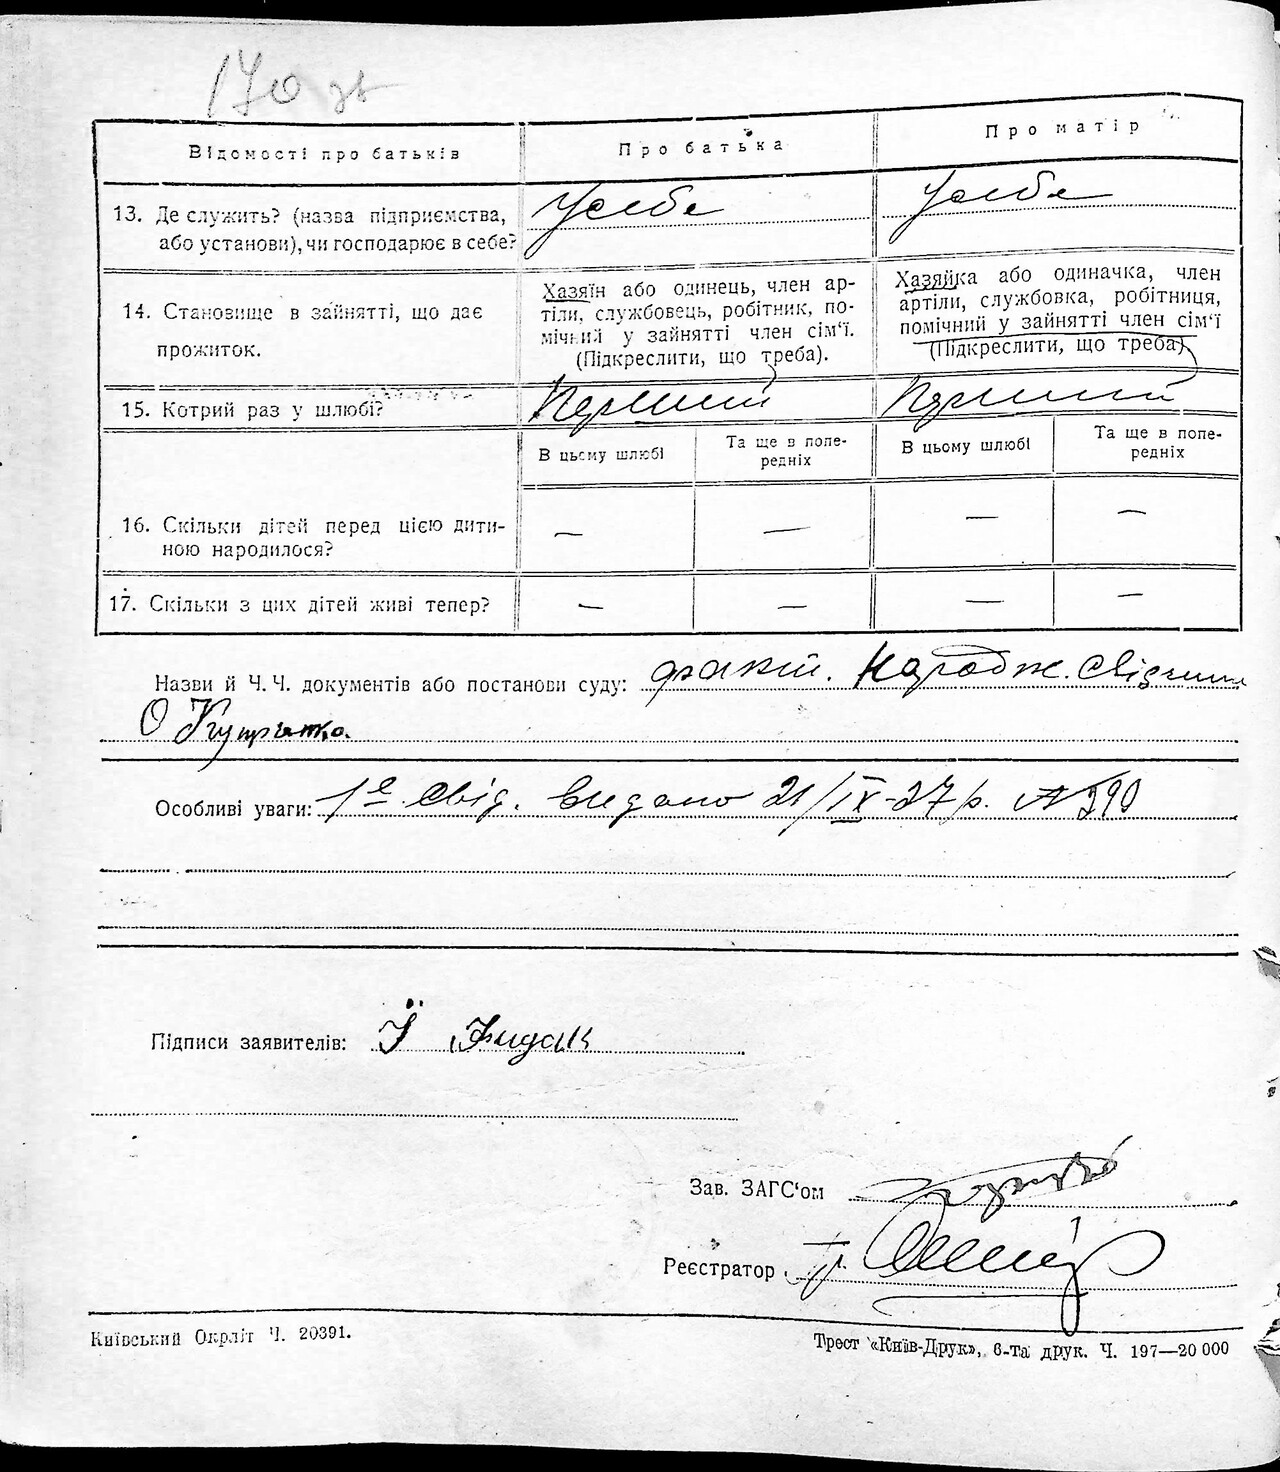 170 зв
Відомості про батьків
Про батька
Про матір
13. Де служить? (назва підприємства,
або установи), чи господарює в себе?
У себе
У себе
14. Становище в зайнятті, що дає
прожиток.
Хазяїн або одинець, член ар-
тіли, службовець, робітник, по-
мічний у зайнятті член сім'ї.
(Підкреслити, що треба).
Хазяйка або одиначка, член
артіли, службовка, робітниця,
помічний у зайнятті член сім'ї
(Підкреслити, що треба).
15. Котрий раз у шлюбі?
Перший
Перший
В цьому шлюбі
Та ще в попе-
редніх
В цьому шлюбі
Та ще в попе-
редніх
16. Скільки дітей перед цією дити-
ною народилося?
— — — —
17. Скільки з цих дітей живі тепер?
— — — —
Назви й Ч. Ч. документів або постанови суду: факт. Народж.
Особливі уваги: 1е свід. видано 21/IX-27 р. № 290
Підписи заявителів:
Зав. ЗАГС'ом
Реєстратор
Київський Окрліт Ч. 20391.
Трест «Київ-Друк», 6-та друк. Ч. 197—20 000